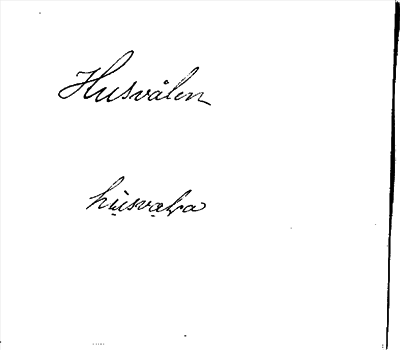 Husvålen
hụ̇svạla